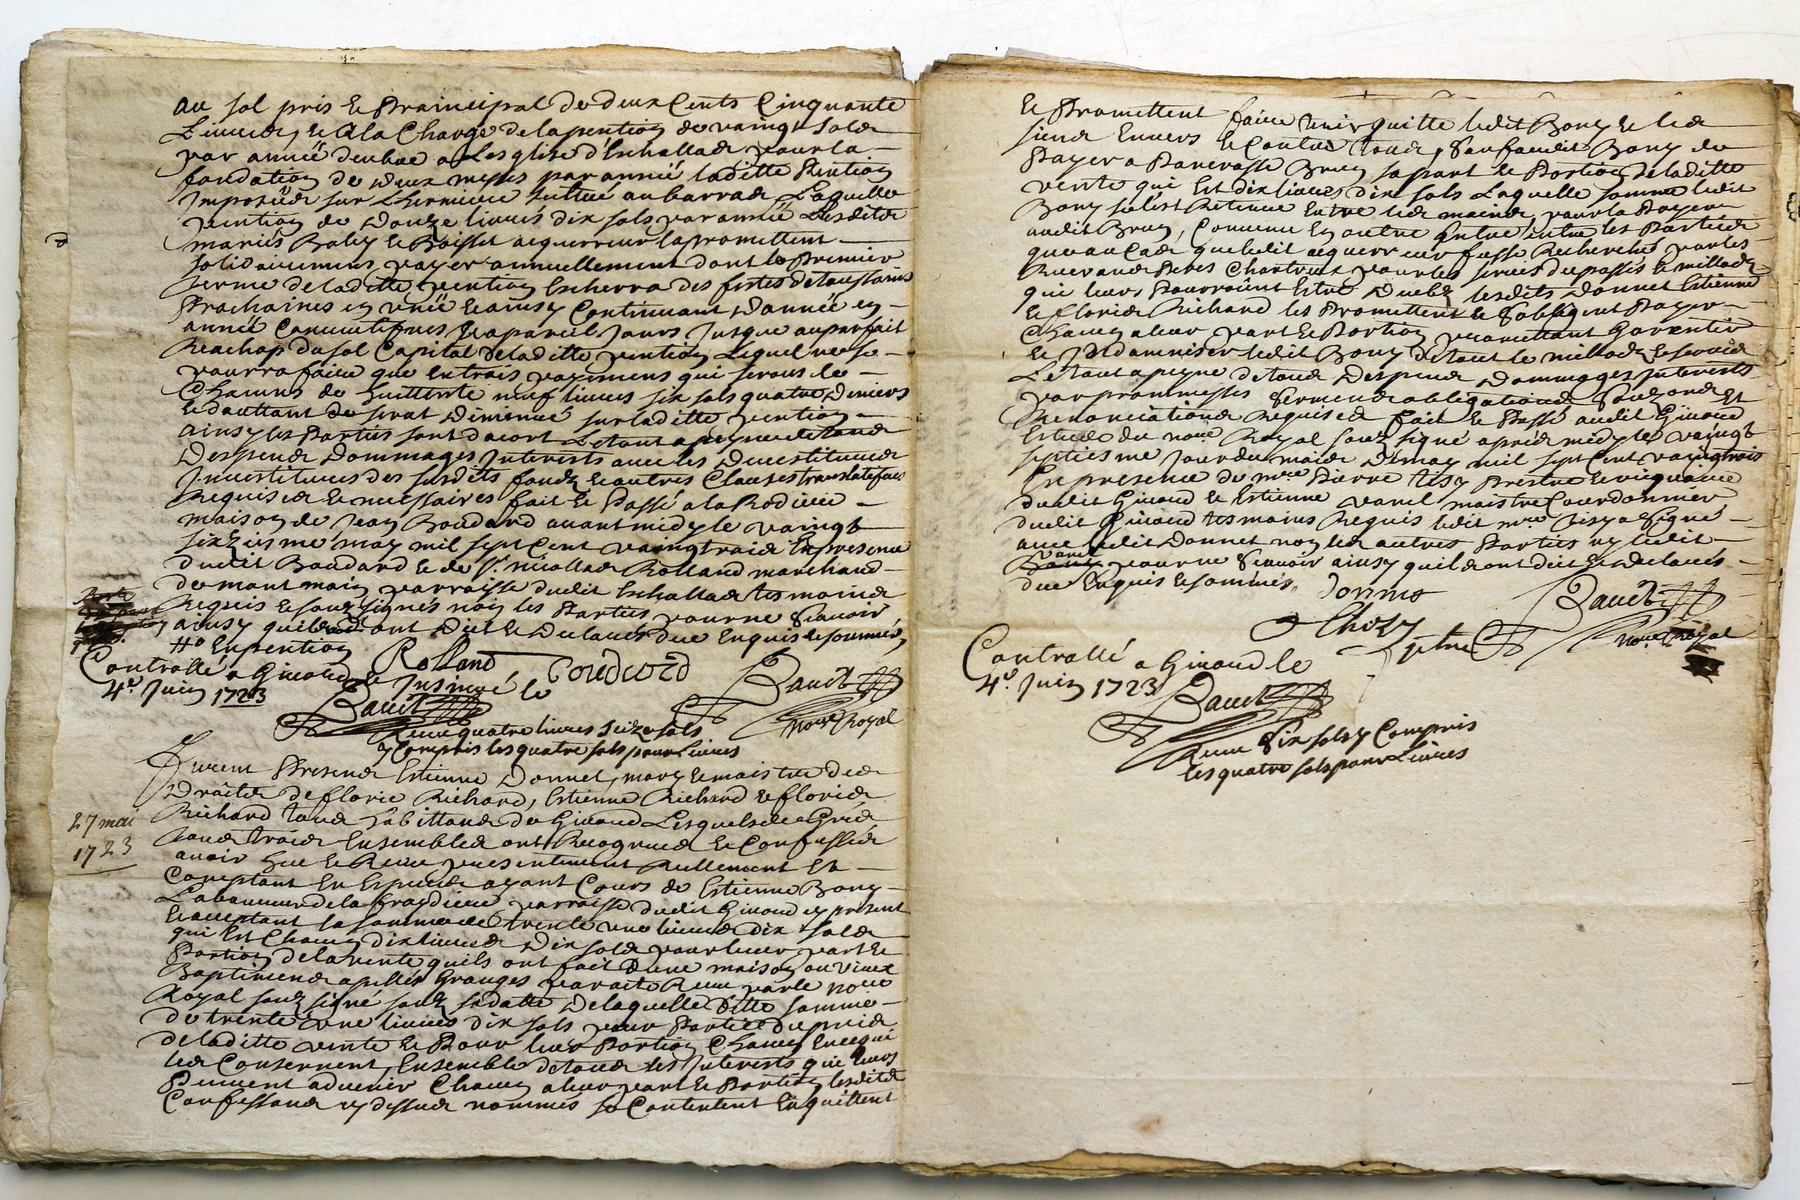 au sol pris & Prainsipal de deux Cents Cinquante
Livres, & A la Charge de la pention de vaingt sols
par année deube a Lesglise d'Eschallas pour la
fondation de deux messes par année laditte Pention
Imposée sur L'hermiere scittué au barrad, Laquelle
pention de Douze livres dix sols par année Lesdits
mariés & acquerreur la promettent
solidairement payer annuellement dont le Premier
terme de laditte pention Escherra des festes de toussaints
Prochaines en unë & ainsy Continuant d'année en
année a pareil Jours Jusque au parfait
Reachap du sol Capital de laditte pention Lequel ne se
pourra faire que en trois payemens qui seront le
Chacuns de huittente neuf livres six sols quatre deniers
& dauttant Diminué sur laditte pention
ainsy les Parties sont dacort & tout a peyne de tous
Despens Dommages Interests avec les Devestitures
Investitures des susdits fondz & autres Clauses translatefs
Requises & necessaires fait & Passé a la Rodiere
maison de Jean Boudard avant midy le vaingt
sixziesme may mil sept Cent vaingtrois En presence
dudit Boudard & de Sr. nicollas Rolland marchand
de mont main parroisse dudit Eschallas tesmoins
Requis & souz signés non les Parties pour ne scavoir
ainsy quils ont Dit & Declaré de ce Enquis & sommés,
Ho En pention
Contrallé a Givord le Rolland Boudard Baudt
4e. Juin 1723 Insinué le nore Royal
Baudt
Receu quatre livres seize sols
y Compris les quatre sols pour Livres
Furent Presens Estienne Donnet, mary & maistre des
27 mai
1723
Droits de florie Richard, Estienne Richard & florie
Richard tous habittans de Givord Lesquels de Gré
tous trois Ensembles ont Recognus & Confessés
avoir heu & Receu presentement Reellement &
Comptant En Espèces ayant Cours de Estienne Bony
Laboureur de la fraydiere parroisse dudit Givord cy present
& acceptant la somme de trente une livres dix sols
qui Est Chacun dix livres Dix sols pour leur part &
Portion de la vente quils ont fait d'une maison ou vieux
Baptimens apellés Granges par acte Receu par le nore
Royal souz signé souz sa datte De laquelle ditte somme
de trente une livres dix sols pour Parties du prix
de laditte vente & Pour leur Portion Chacun En ce qui
les Consernent, Ensemble de tous les Interests qui leurs
Peuvent advenir Chacun a leur part & Portion, lesdits
Confessans cy dessus nommés se Contentent En quittent
& Promettent faire tenir quitte ledit Bony & les
siens Envers & Contre tous, Sauf audit Bony de
Payer a Pancrasse Bruy sa part & Portion de laditte
vente qui Est dix livres dix sols Laquelle somme ledit
Bony sest Retenue Entre les mains, pour la Payer
audit Bruy, Convenu En outre Entre les Parties
que au Cas que ledit acquerreur fusse Recherché par les
Reverans Peres Chartreux pour les servis du passés & millods
qui leurs Pourroient Estre Deubz lesdits Donnet Estienne
& florie Richard les Promettent & sobligent Payer
Chacun a leur part & Portion promettant Garentir
& Indamniser ledit Bony de tout le millods & servis
Le tout a peyne de tous Despens Dommages Interests
par promesses sermens obligations Souzons &
Renonciations Requises fait & Passé audit Givord
Estude du nore Royal souz signé apriés midy le vaingt
septiesme Jour du mois De may mil sept Cent vaingtrois
En presence de mre Pierre tisy Prestre & viquaire
dudit Givord & Estienne Varel maistre Courdonnier
dudit Givord tesmoins Requis ledit mre tisy a Signé
avec ledit Donnet non les autres Parties ny ledit
Varel pour ne Scavoir ainsy quils ont dit & Declarés
de ce Enquis & sommés, donno
Baudt
nore Royal
Contrallé a Givord le
4e. Juin 1723
Baudt
Receu Six sols y Compris
les quatre sols pour Livres